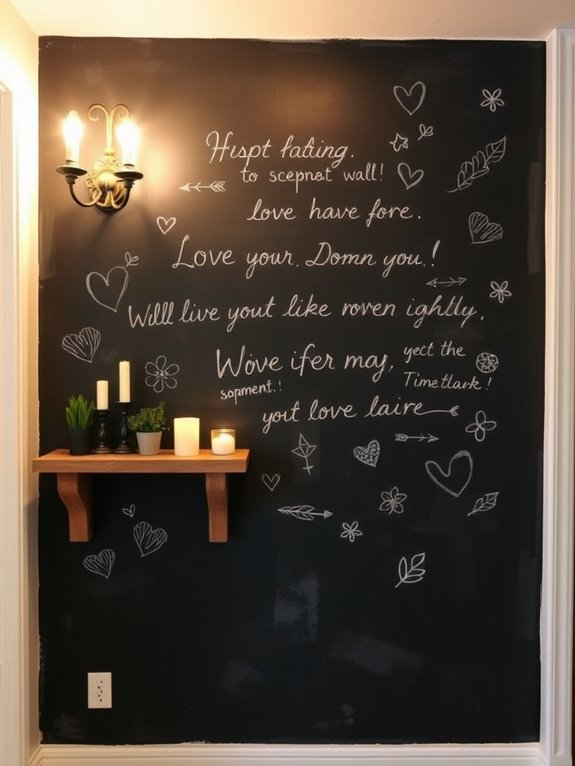 Hispt fatiing.
to scepnast wall!
love have fore.
Love your. Domn you.!
Welll live yout like roven ightly,
Wove ifer may, yect the
sopment.! Timetlark!
yout love laire